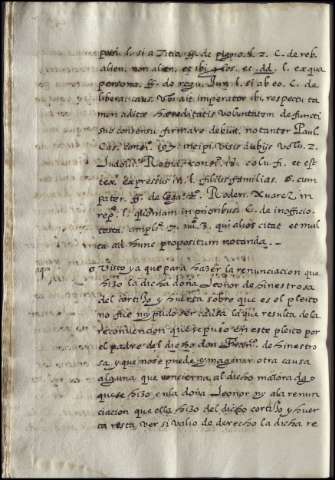 puta l. si a Titia ff. de pigno. l. 2. C. de reb.
alien. non alien. et ibi glos. et dd. l. ex qua
persona ff. de regu. Jun. l. si ab eo C. de
liberali caus. Vbi ait imperator ibi, respectu ta
men aditæ hæreditatis voluntatem defuncti
suo consensu firmare debuit, notanter Paul.
Cas. consi. 197 incipi. visis dubijs volu. 2.
Ludolui. Roma. consi. colu. fi. et est
tex. expressus in l. filiusfamilias. §. cum
pater. ff. de lega. 1. Roderi. Xuarez in
rep. l. quoniam in prioribus C. de inoffic.
testa. ampl. num. 3. qui alios citat et mul
ta ad hunc propositum notanda.
Visto ya que para hazer la renunciacion que
hizo la dicha doña Leonor de hinestrosa
del cortijo y huerta sobre que es el pleito
no fue ny pudo ser causa la que resulta de la
reconuencion que se puso en este pleito por
el padre del dicho don de hinestro
sa, y que no se puede ymaginar otra causa
alguna que concierna al dicho mayorazgo
que se hizo en la doña Leonor ny a la renun
ciacion que ella hizo del dicho cortijo y huer
ta resta ver si valio de derecho la dicha re